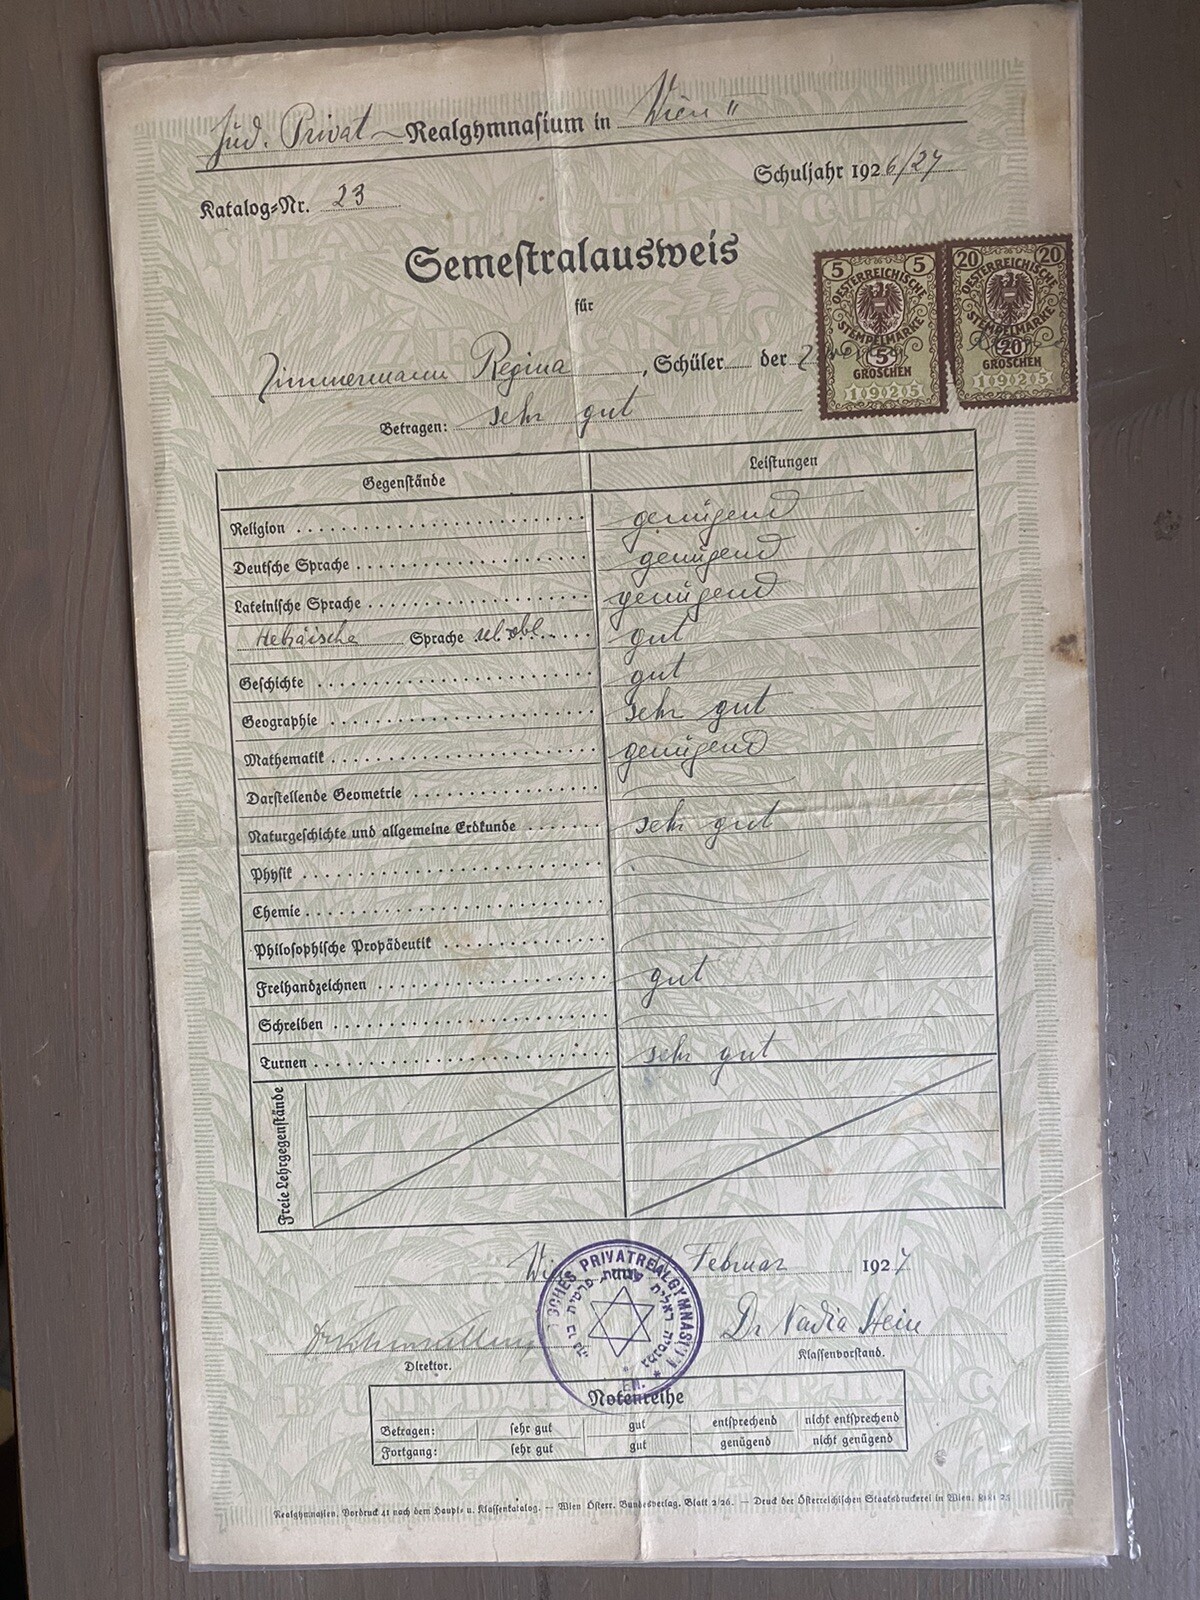 Jüd. Privat-Realgymnasium in Wien II
Schuljahr 1926/27
Katalog-Nr. 23
Semestralausweis
für
Zimmermann Regina, Schüler der 2
Betragen: sehr gut
5 5
ÖSTERREICHISCHE
STEMPELMARKE
5
GROSCHEN
1925
20 20
ÖSTERREICHISCHE
STEMPELMARKE
20
GROSCHEN
1925
Gegenstände Leistungen
Religion genügend
Deutsche Sprache genügend
Lateinische Sprache genügend
Hebräische Sprache rel. obl. gut
Geschichte gut
Geographie sehr gut
Mathematik genügend
Darstellende Geometrie
Naturgeschichte und allgemeine Erdkunde sehr gut
Physik
Chemie
Philosophische Propädeutik
Freihandzeichnen gut
Schreiben
Turnen sehr gut
Freie Lehrgegenstände
Wi Februar 1927
PRIVATREALGYMNASIUM
Dr Nadia Stein
Direktor. Klassenvorstand.
Notenreihe
Betragen: sehr gut gut entsprechend nicht entsprechend
Fortgang: sehr gut gut genügend nicht genügend
Realgymnasien. Vordruck 41 nach dem Haupt- u. Klassenkatalog. — Wien Österr. Bundesverlag. Blatt 2/26. — Druck der Österreichischen Staatsdruckerei in Wien.